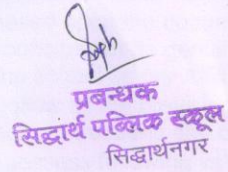 प्रबन्धक
सिद्धार्थ पब्लिक स्कूल
सिद्धार्थनगर